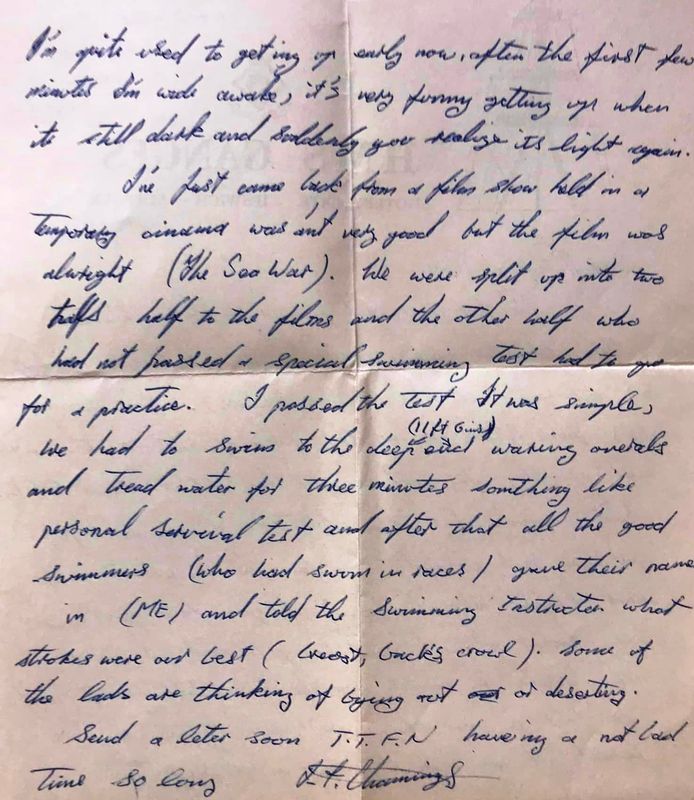 I'm quite used to getting up early now, after the first few
minutes I'm wide awake, it's very funny getting up when
its still dark and suddenly you realize its light again.
I've just came back from a film show held in a
temporary cinema was'ant very good but the film was
alwright (The Sea War). We were split up into two
halfs half to the films and the other half who
had not passed a special swimming test had to go
for a practice. I passed the test It was simple,
(11ft 6ins)
we had to swim to the deep end waring overals
and tread water for three minutes somthing like
personal servival test and after that all the good
swimmers (who had swom in races) gave their name
in (ME) and told the swimming instructer what
strokes were our best (breast, back & crowl). Some of
the lads are thinking of bying out or deserting.
Send a leter soon T.T.F.N haveing a not bad
time so long